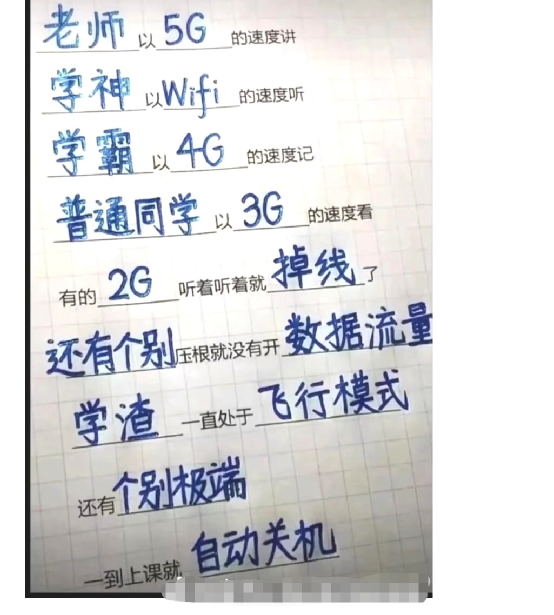 老师以5G的速度讲
学神以Wifi的速度听
学霸以4G的速度记
普通同学以3G的速度看
有的2G听着听着就掉线了
还有个别压根就没有开数据流量
学渣一直处于飞行模式
还有个别极端
一到上课就自动关机